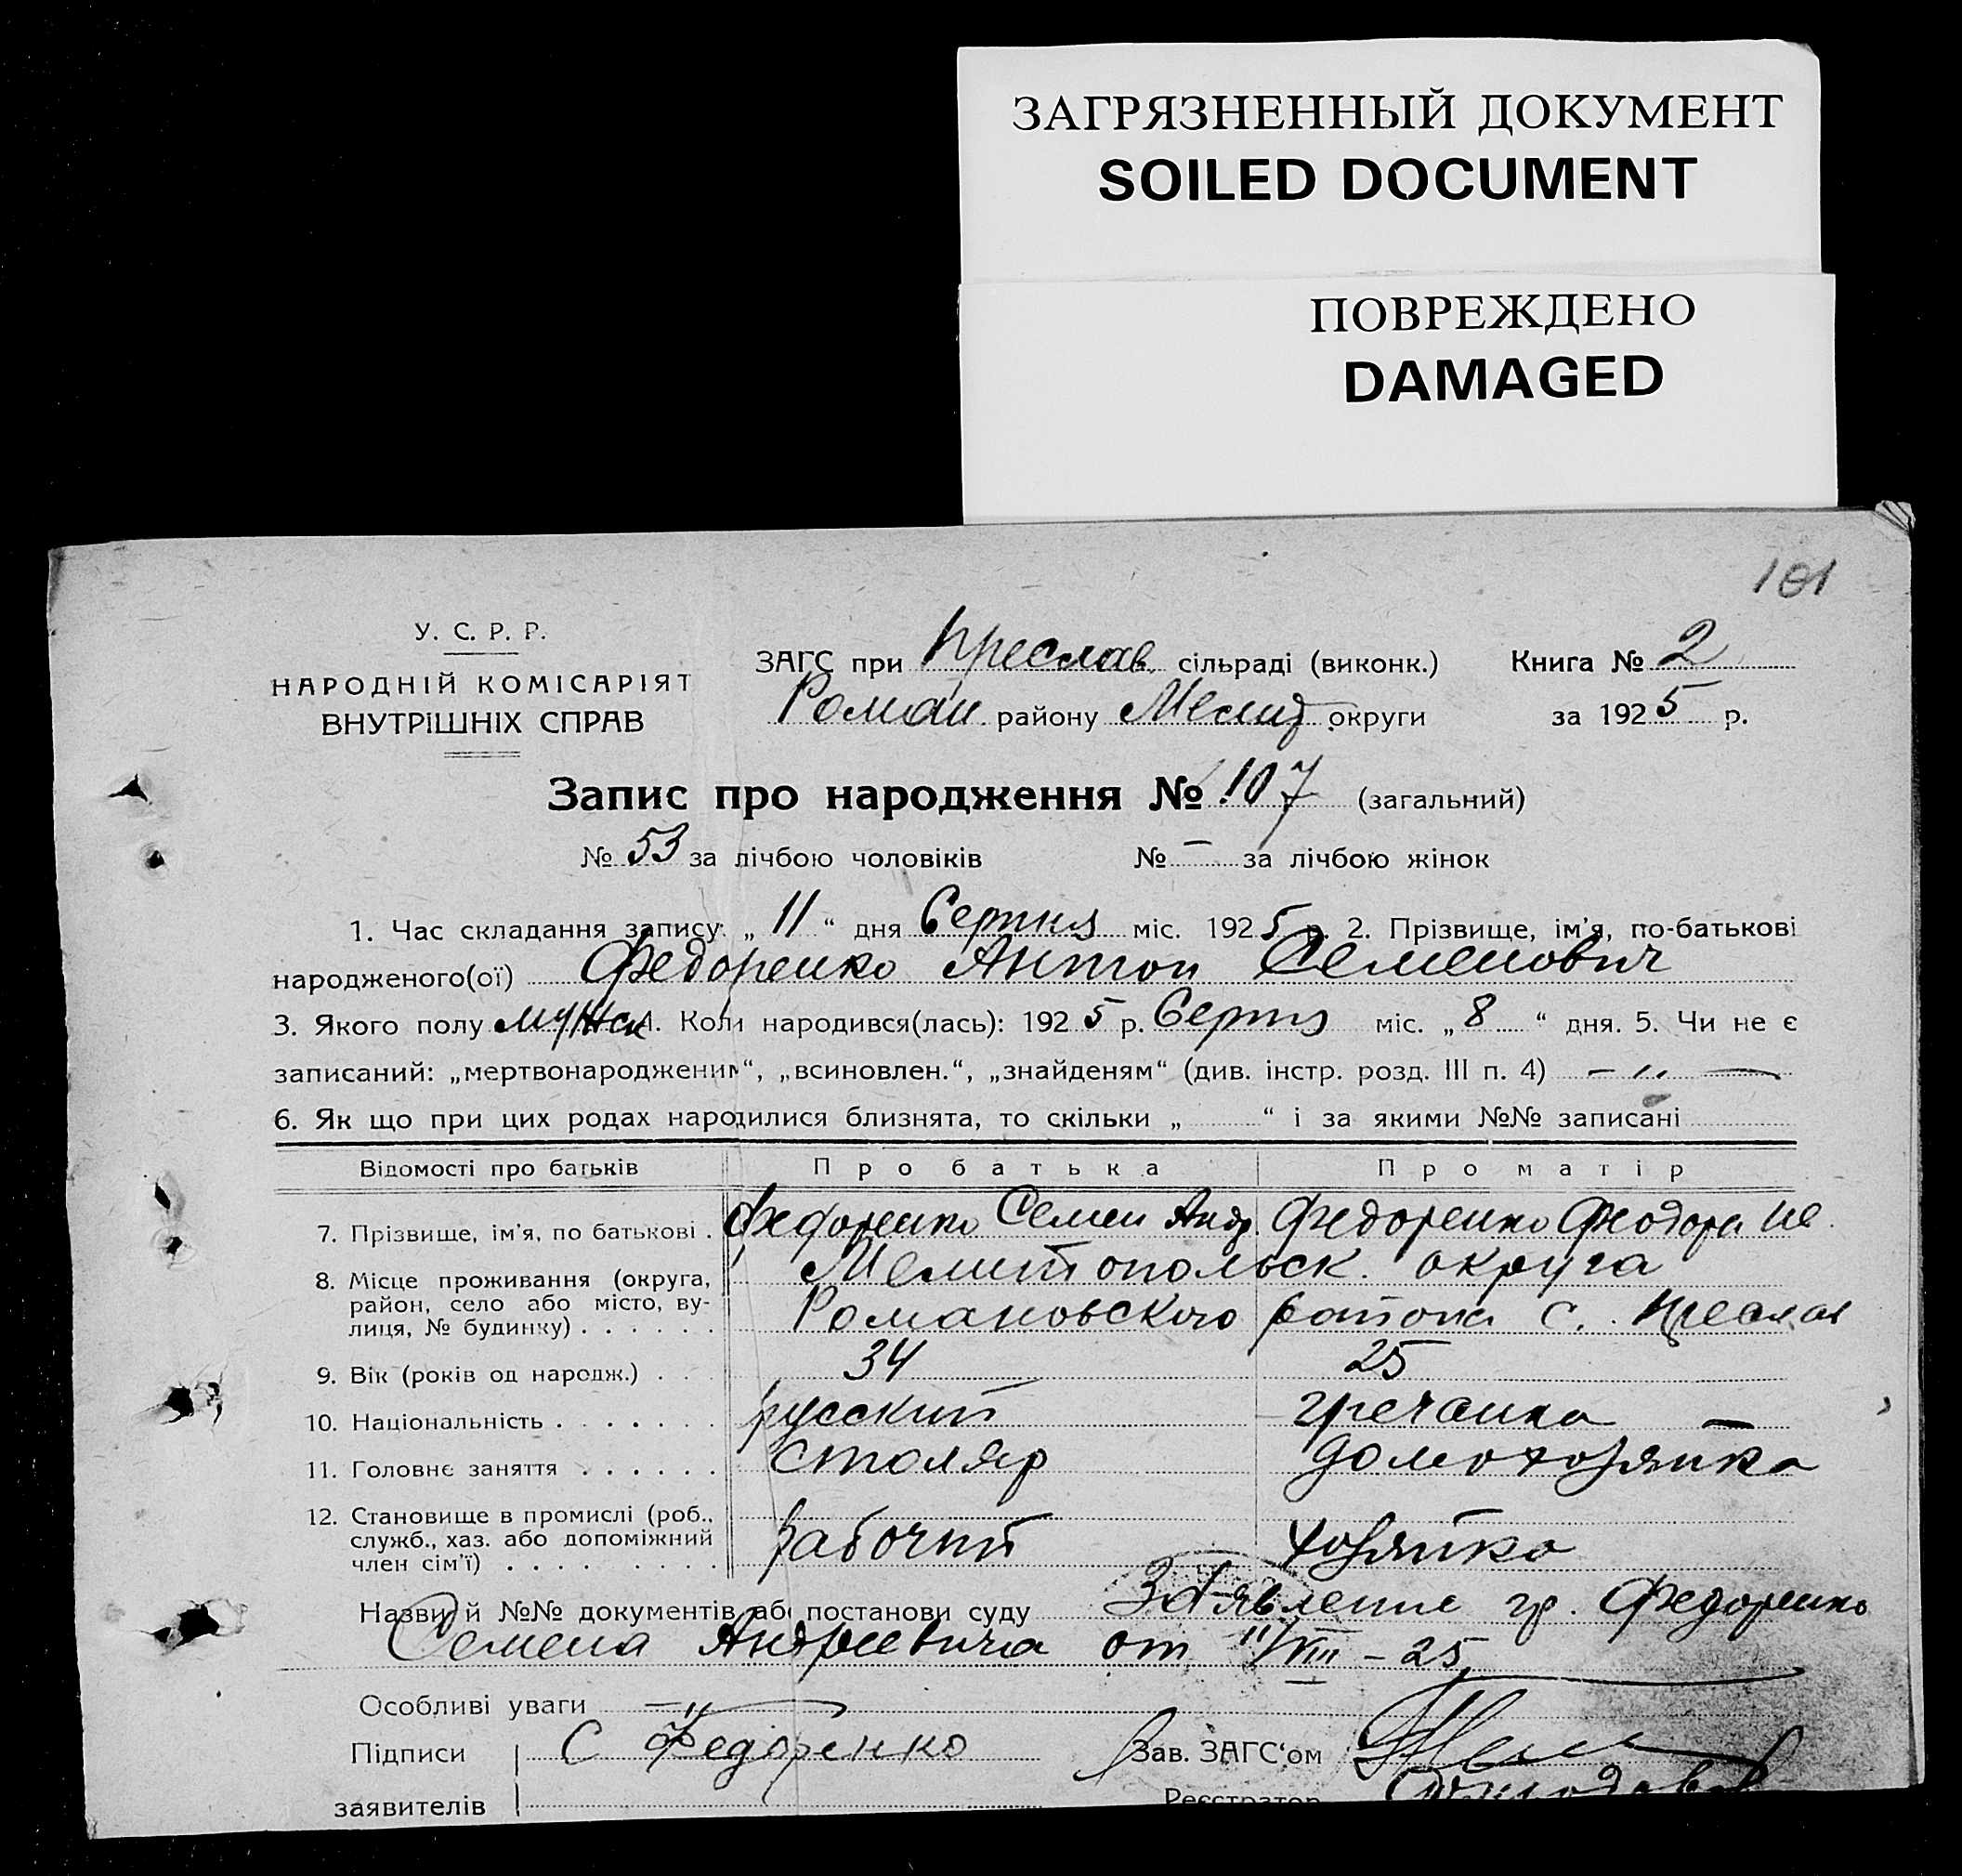 ЗАГРЯЗНЕННЫЙ ДОКУМЕНТ
SOILED DOCUMENT
ПОВРЕЖДЕНО
DAMAGED
101
У. С. Р. Р.
НАРОДНІЙ КОМІСАРІЯТ
ВНУТРІШНІХ СПРАВ
ЗАГС при Преслав. сільраді (виконк.) Книга № 2
Роман. району Мелит. округи за 1925 р.
Запис про народження № 107 (загальний)
№ 53 за лічбою чоловіків № — за лічбою жінок
1. Час складання запису: „ 11 “ дня Серпня міс. 1925 р. 2. Прізвище, ім'я, по-батькові
народженого(ої) Федоренко Антон Семенович
3. Якого полу мужск 4. Коли народився(лась): 1925 р. Серпня міс. „ 8 “ дня. 5. Чи не є
записаний: „мертвонародженим“, „всиновлен.“, „знайденям“ (див. інстр. розд. III п. 4) — „ —
6. Як що при цих родах народилися близнята, то скільки „ “ і за якими №№ записані
Відомості про батьків Про батька Про матір
7. Прізвище, ім'я, по батькові . Федоренко Семен Андр. Федоренко Феодора Ив.
8. Місце проживання (округа, район, село або місто, ву-лиця, № будинку) . . . . . . Мелитопольск. округа
Романовского района с. Преслав
9. Вік (років од народж.) . . . 34 25
10. Національність . . . . . . . русский гречанка —
11. Головнє заняття . . . . . . столяр домохозяйка
12. Становище в промислі (роб., служб., хаз. або допоміжний член сім'ї) . . . . . . . . . рабочий хозяйка
Назви й №№ документів або постанови суду Заявление гр. Федоренко
Семена Андреевича от 11/VIII – 25
Особливі уваги — „ —
Підписи С Федоренко Зав. ЗАГС'ом
заявителів Реєстратор